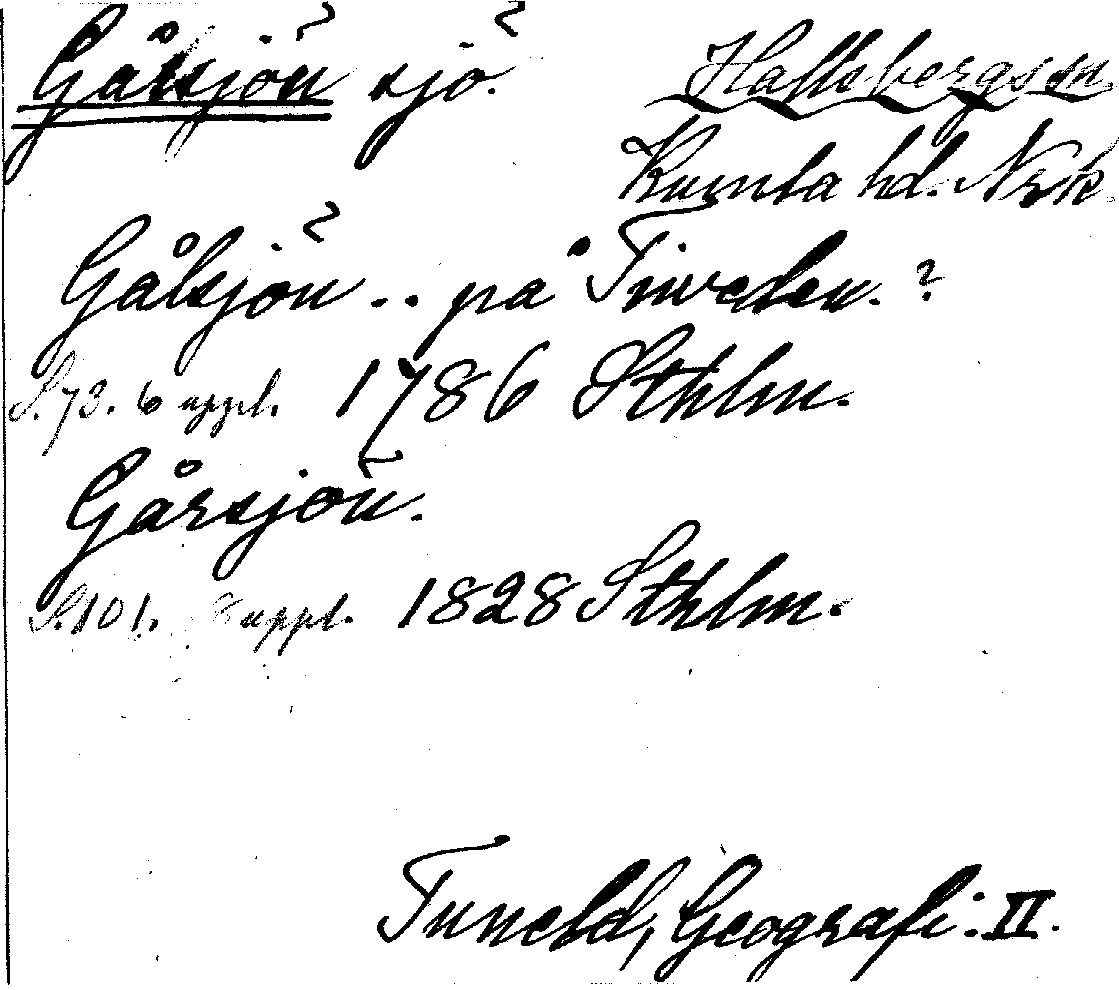 Gålsjön sjö. Hallsbergs sn
Kumla hd. Nrk.
Gålsjön .. på Tiveden.?
S. 73. 6 uppl. 1786 Sthlm.
Gårsjön.
S. 101. 8 uppl. 1828 Sthlm.
Tuneld, Geografi. II.